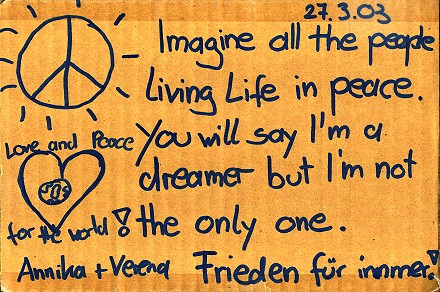 27.3.03
Imagine all the people
Living Life in peace.
You will say I'm a
dreamer but I'm not
the only one.
Love and Peace
for the world!
Annika + Verena
Frieden für immer!